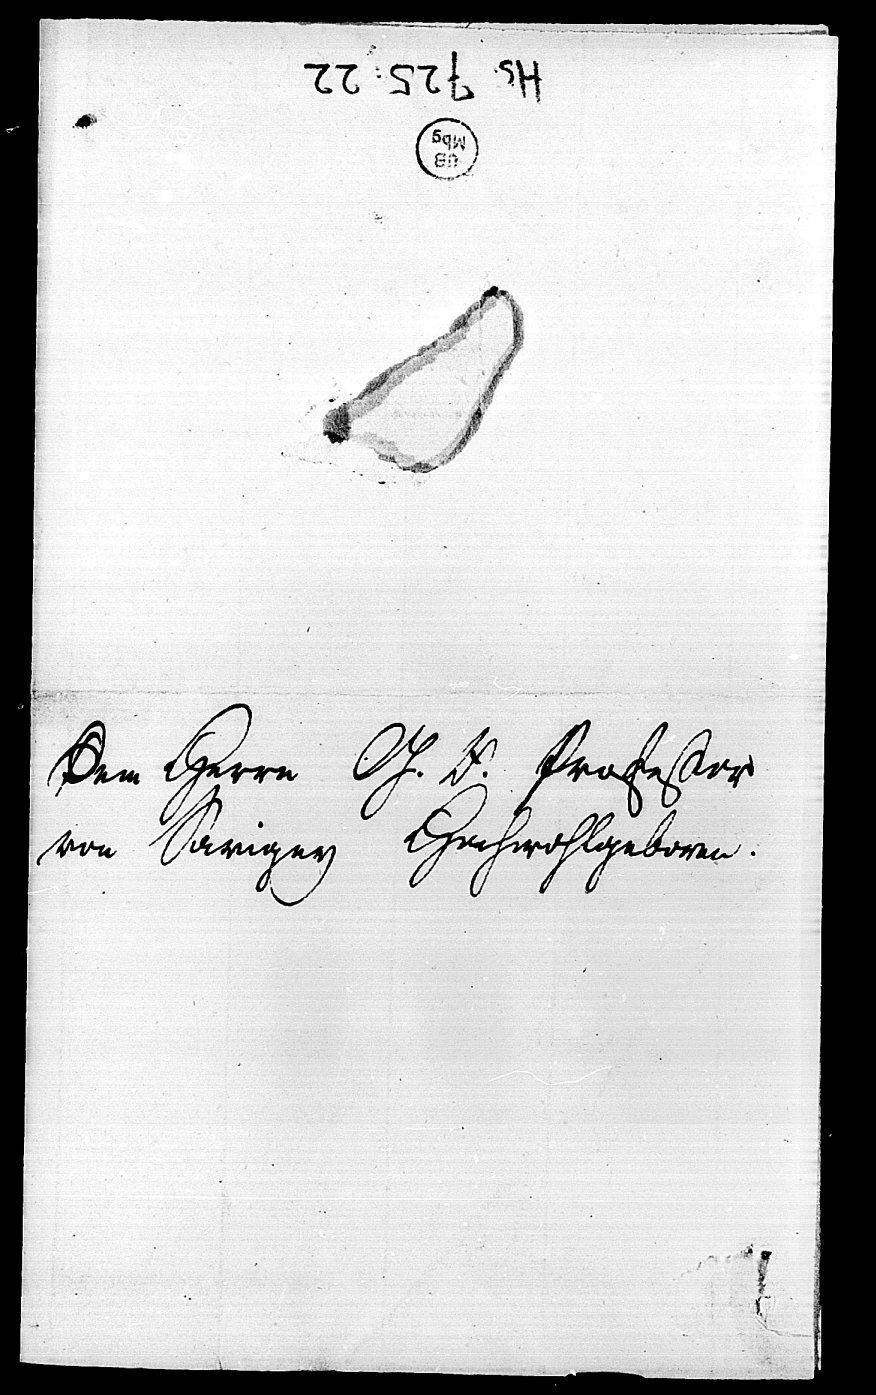 Hs. 725:22
UB
Mbg
Dem Herrn G. R. Professor
von Savigny Hochwohlgeboren.